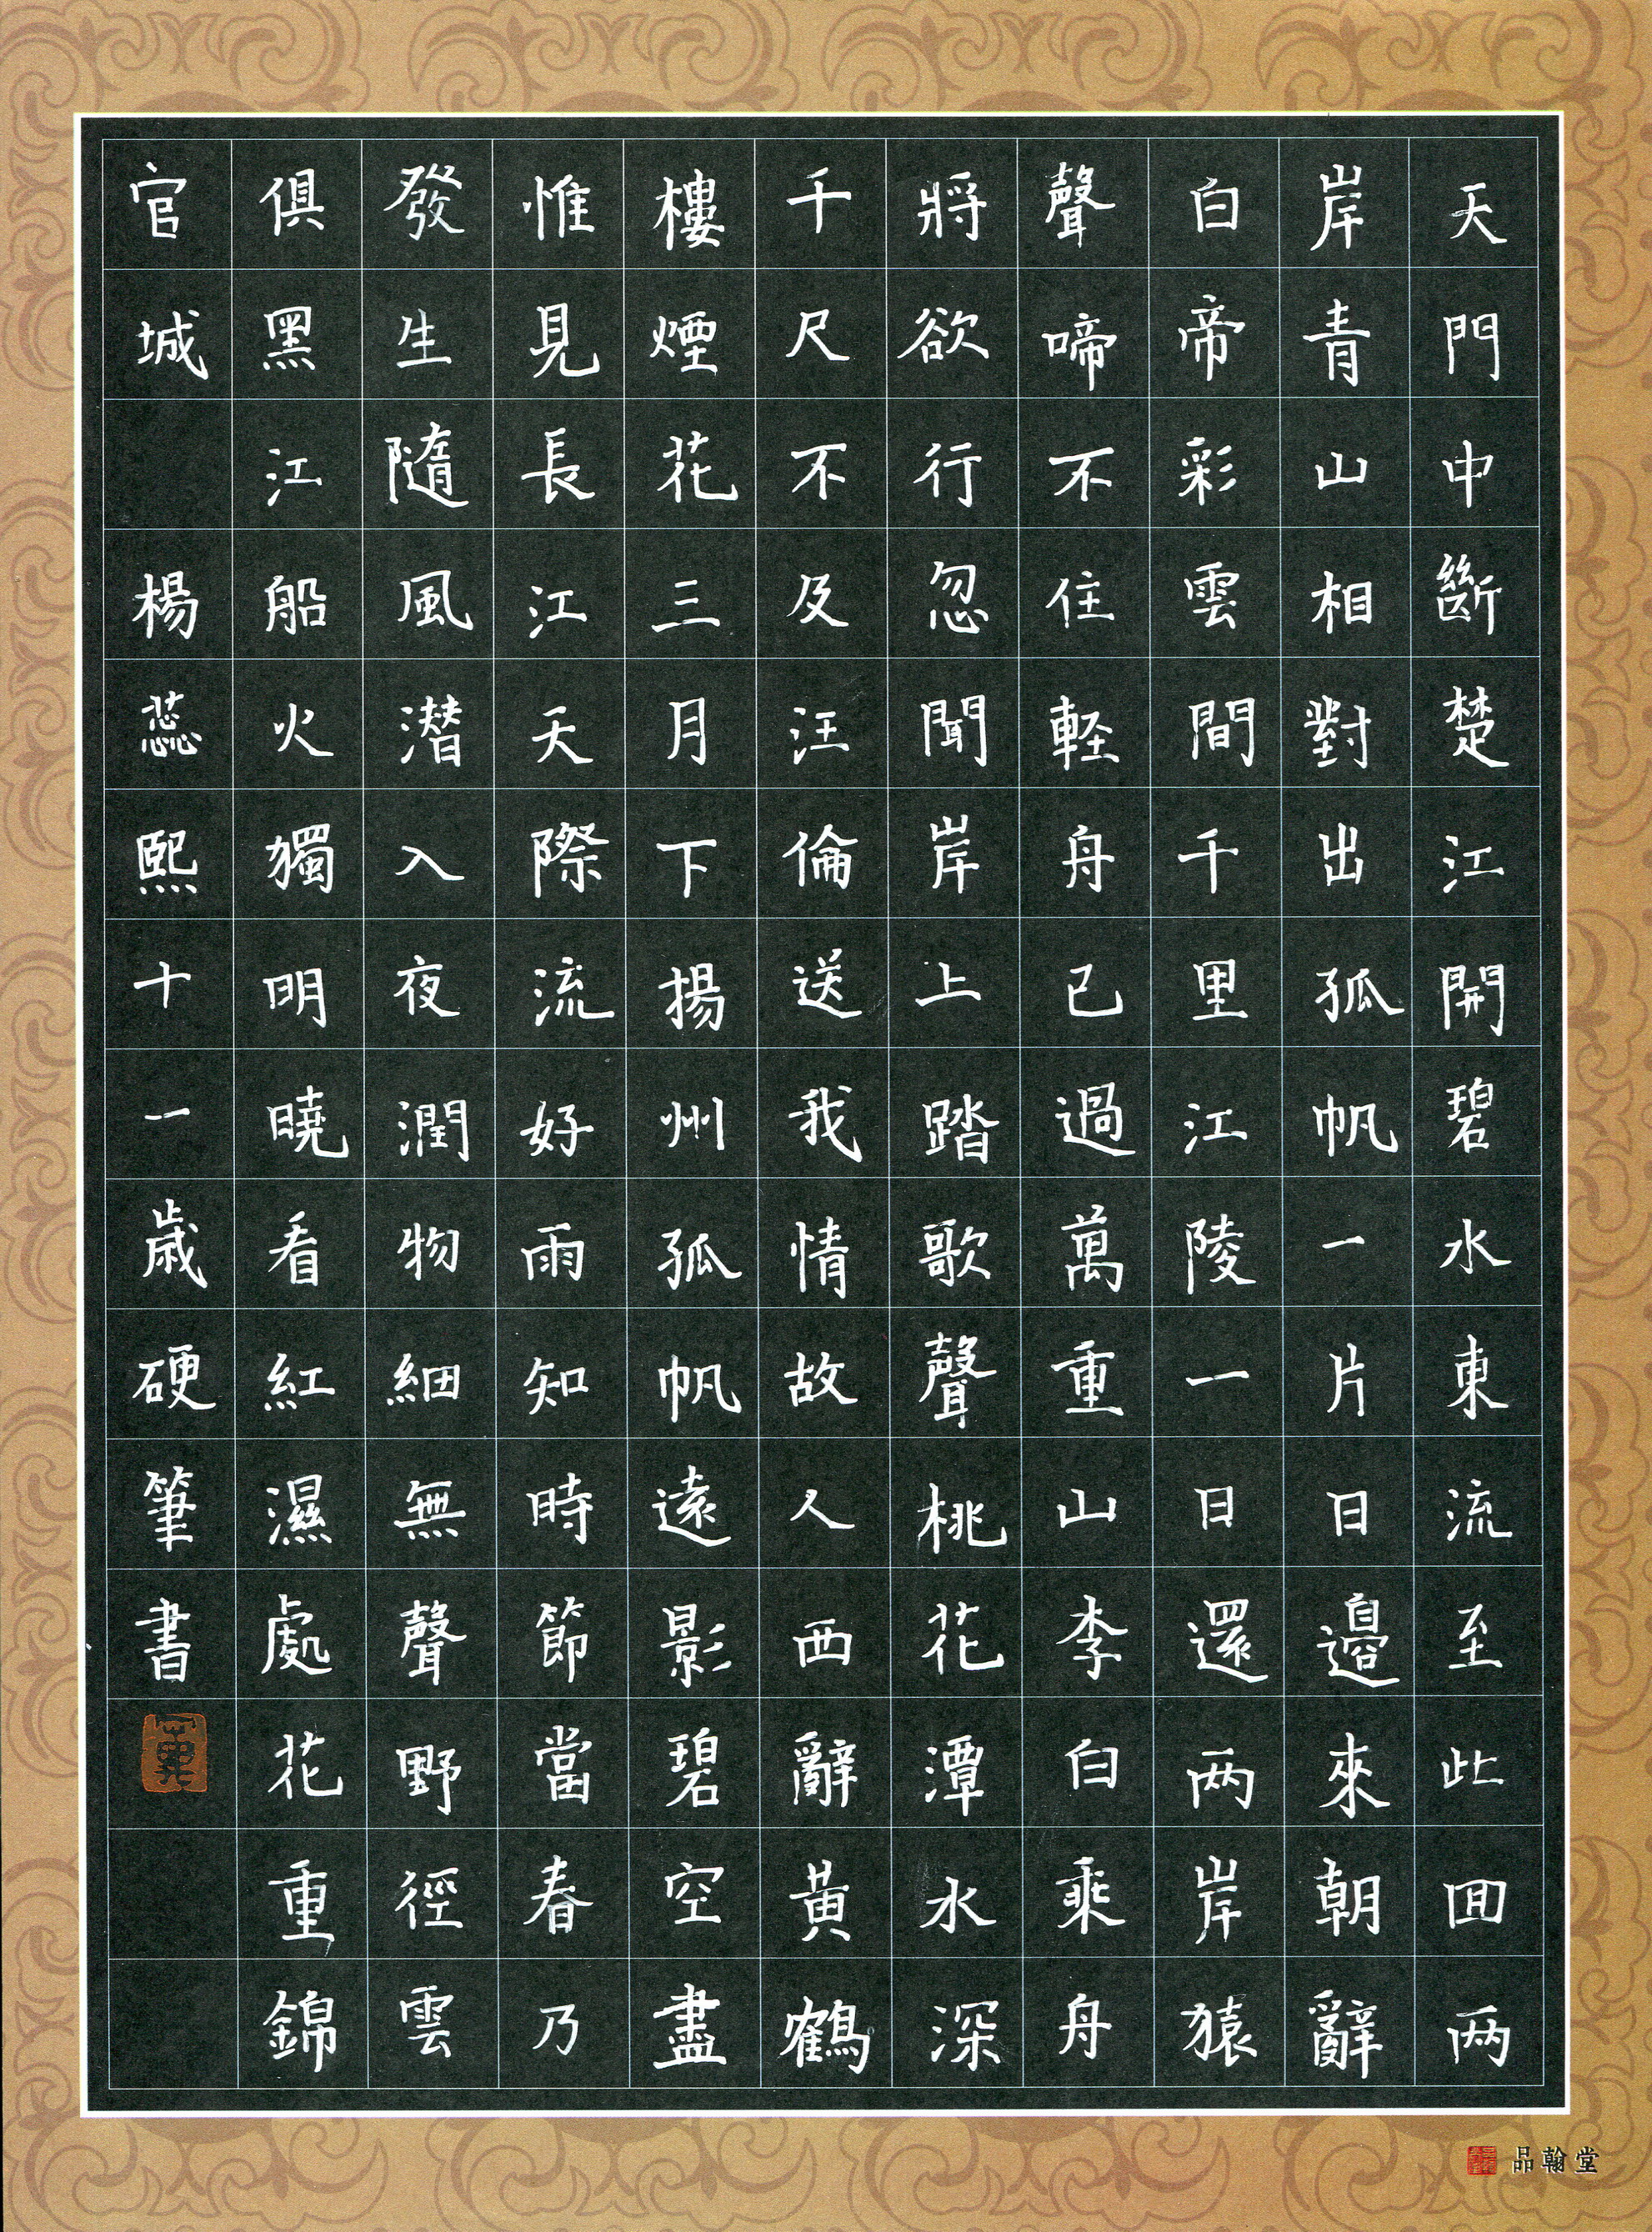 天門中斷楚江開碧水東流至此囬两
岸青山相對出孤帆一片日邊來朝辭
白帝彩雲間千里江陵一日還两岸猿
聲啼不住軽舟已過萬重山李白乘舟
將欲行忽聞岸上踏歌聲桃花潭水深
千尺不及汪倫送我情故人西辭黃鶴
樓煙花三月下揚州孤帆遠影碧空盡
惟見長江天際流好雨知時節當春乃
發生隨風潜入夜潤物細無聲野徑雲
俱黑江船火獨明曉看紅濕處花重錦
官城 楊蕊熙十一歲硬筆書
品翰堂